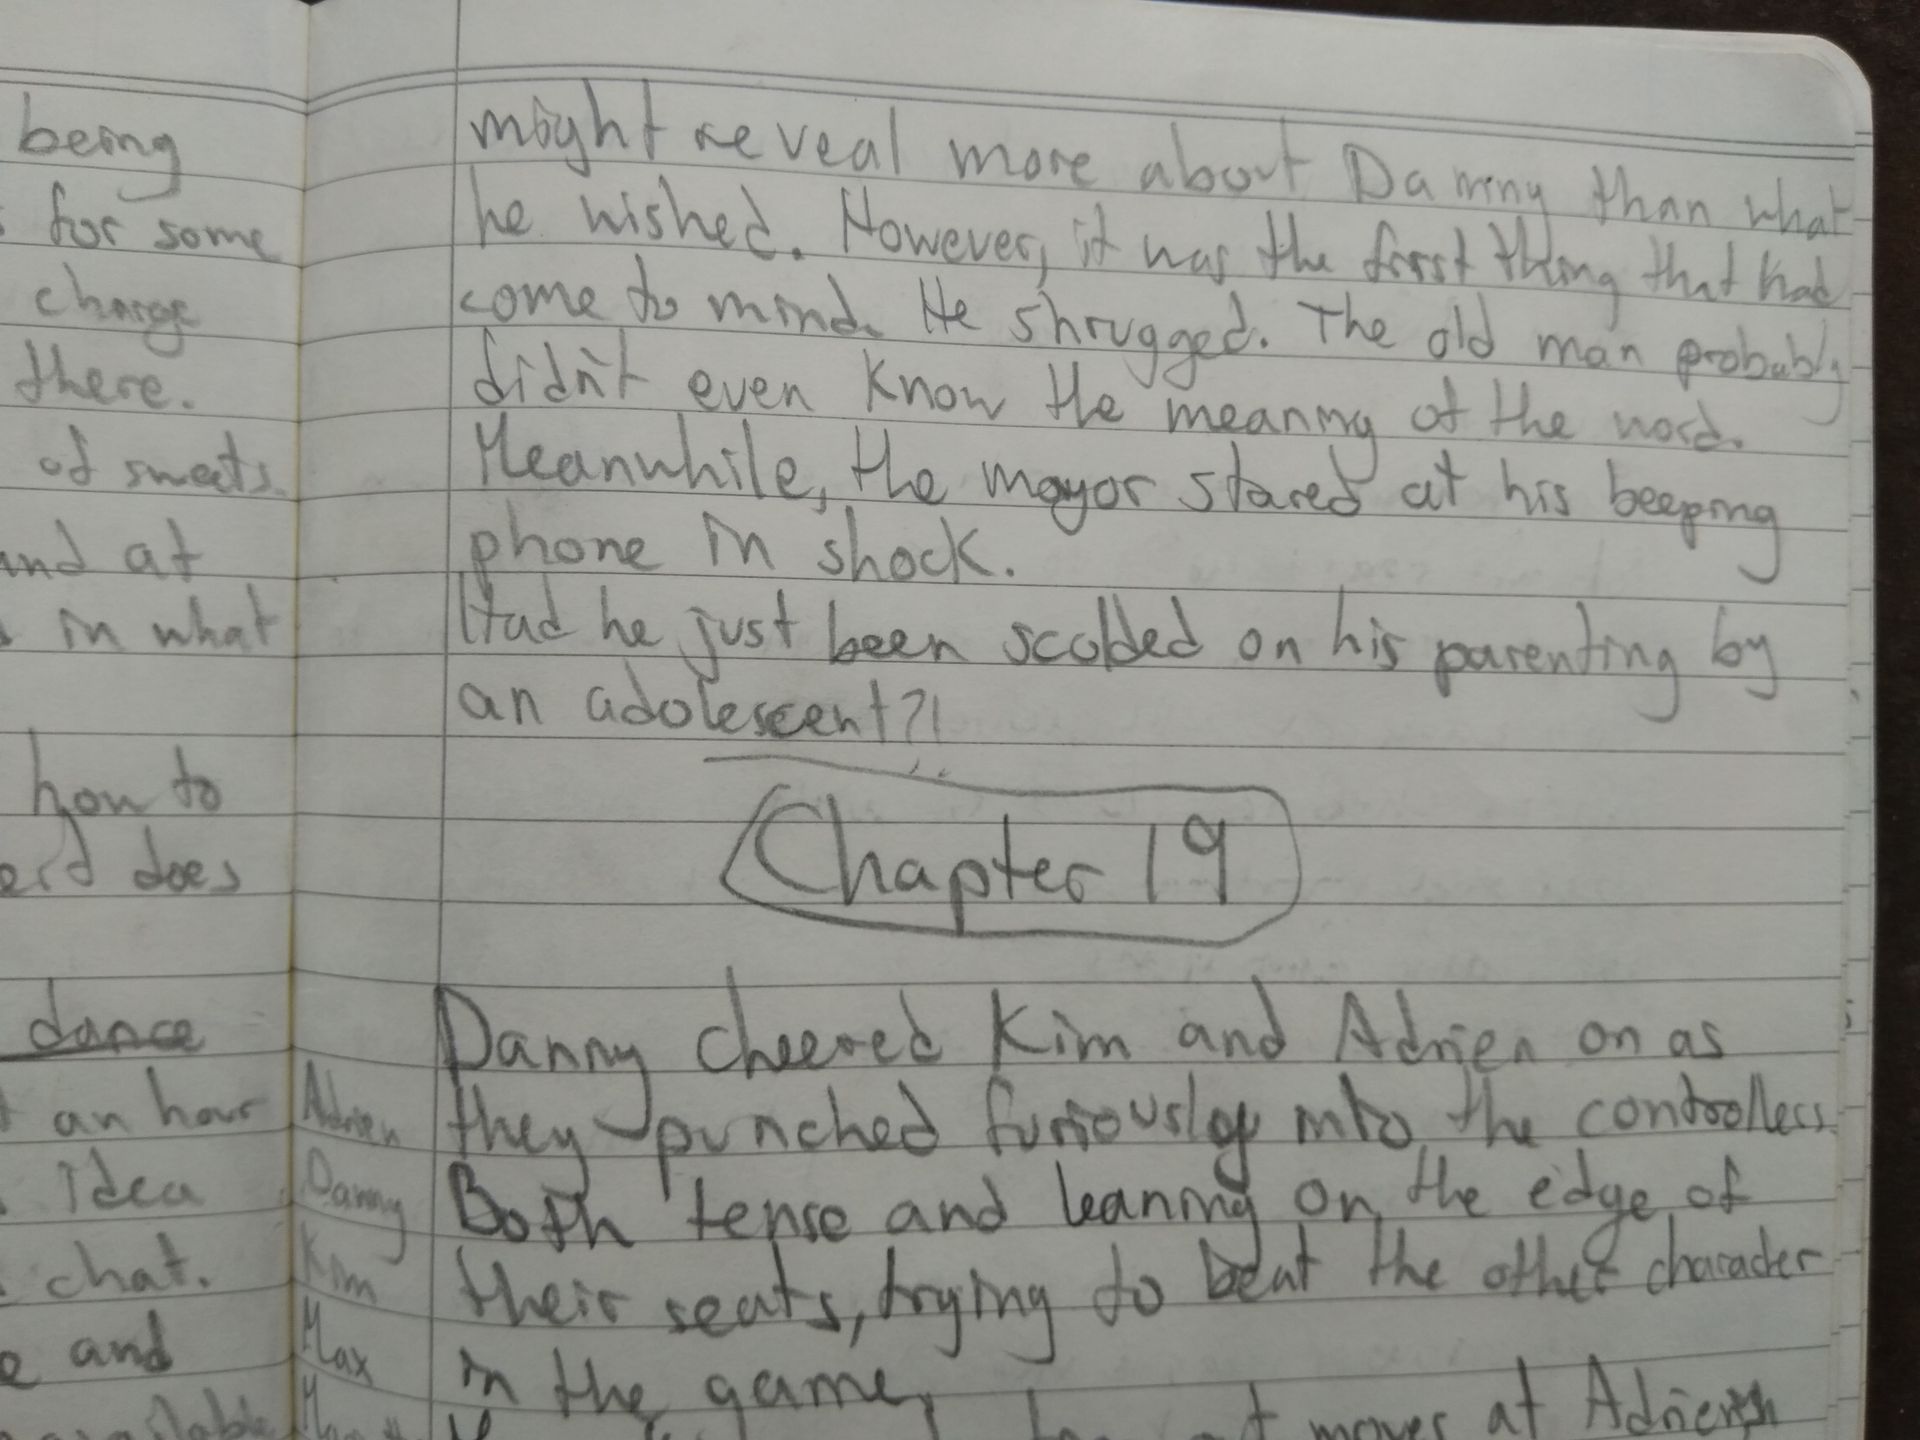 being
for some
charge
there.
of sweets.
and at
in what
how to
does
dance
an hour
idea
chat.
and
might reveal more about Danny than what
he wished. However, it was the first thing that had
come to mind. He shrugged. The old man probably
didn't even know the meaning of the word.
Meanwhile, the mayor stared at his beeping
phone in shock.
Had he just been scolded on his parenting by
an adolescent?!
Chapter 19
Adrien
Danny
Kim
Max
Danny cheered Kim and Adrien on as
they punched furiously into the controllers.
Both tense and leaning on the edge of
their seats, trying to beat the other character
in the game.
moves at